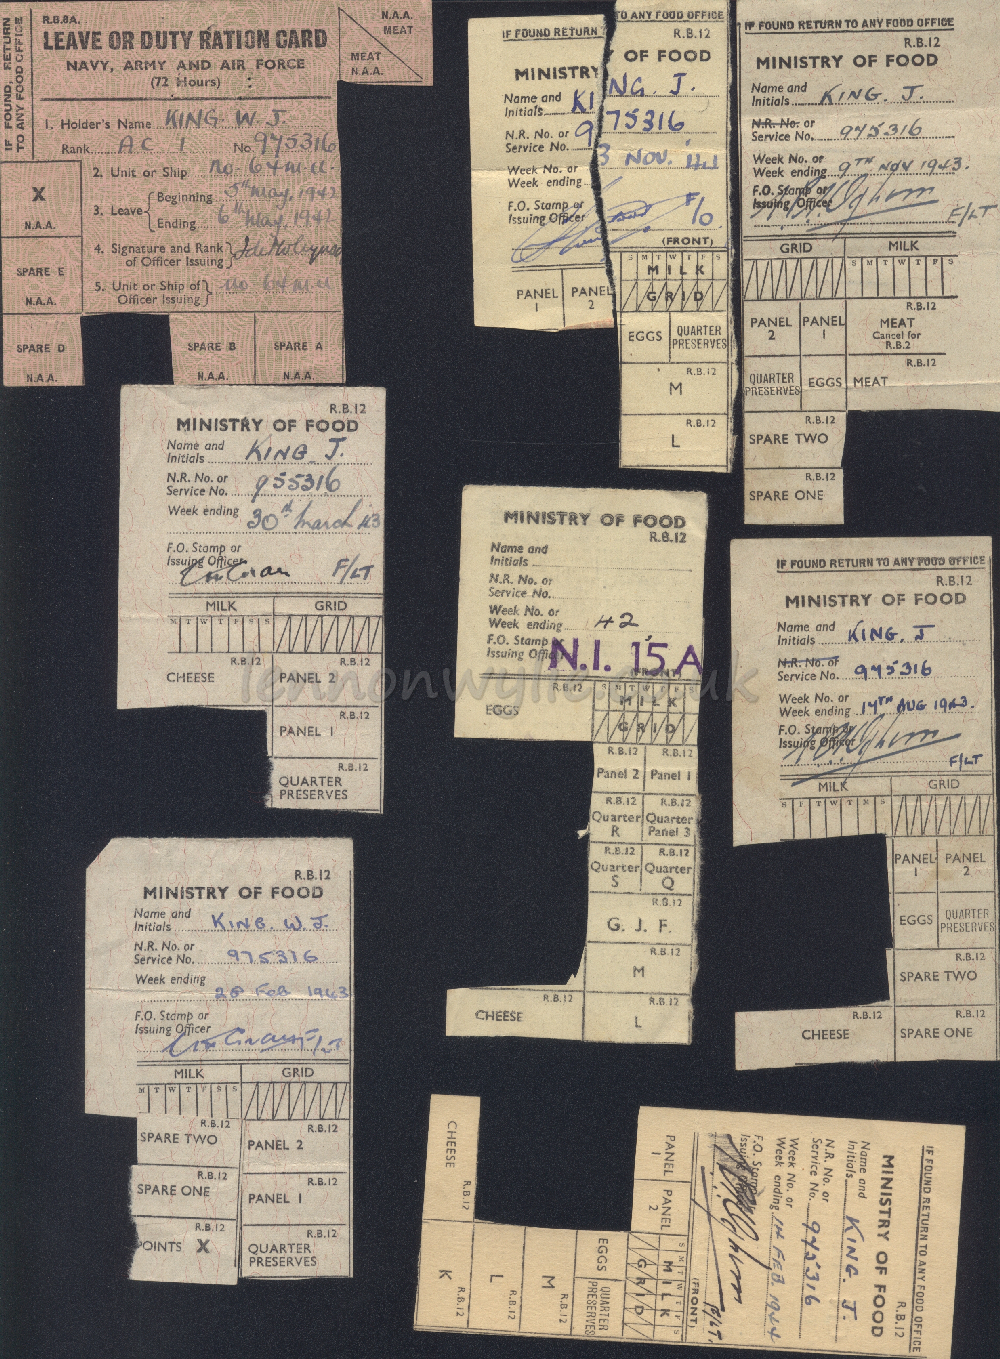 IF FOUND, RETURN
TO ANY FOOD OFFICE
R.B.8A.
LEAVE OR DUTY RATION CARD
NAVY, ARMY AND AIR FORCE
(72 Hours)
N.A.A.
MEAT
MEAT
N.A.A.
1. Holder's Name KING W. J.
Rank AC 1 No. 975316
2. Unit or Ship No. 64 M.U.
3. Leave Beginning 5th May, 1942
Ending 6th May, 1942
4. Signature and Rank
of Officer Issuing
5. Unit or Ship of
Officer Issuing No 64 M.U.
X
N.A.A.
SPARE E
N.A.A.
SPARE D
N.A.A.
SPARE B
N.A.A.
SPARE A
N.A.A.
IF FOUND RETURN TO ANY FOOD OFFICE
R.B.12
MINISTRY OF FOOD
Name and
Initials KING. J.
N.R. No. or
Service No. 975316
Week No. or
Week ending 3 NOV. 44
F.O. Stamp or
Issuing Officer F/O
(FRONT)
S M T W T F S
MILK
GRID
PANEL
1
PANEL
2
EGGS
QUARTER
PRESERVES
R.B.12
M
R.B.12
L
IF FOUND RETURN TO ANY FOOD OFFICE
R.B.12
MINISTRY OF FOOD
Name and
Initials KING. J.
N.R. No. or
Service No. 945316
Week No. or
Week ending 9TH NOV 1943.
F.O. Stamp or
Issuing Officer F/LT
GRID
MILK
S M T W T F S
PANEL
2
PANEL
1
R.B.12
MEAT
Cancel for
R.B.2
QUARTER
PRESERVES
EGGS
R.B.12
MEAT
R.B.12
SPARE TWO
R.B.12
SPARE ONE
R.B.12
MINISTRY OF FOOD
Name and
Initials KING J.
N.R. No. or
Service No. 955316
Week ending 30th March 43
F.O. Stamp or
Issuing Officer F/LT
MILK
GRID
M T W T F S S
R.B.12
CHEESE
R.B.12
PANEL 2
R.B.12
PANEL 1
R.B.12
QUARTER
PRESERVES
MINISTRY OF FOOD
R.B.12
Name and
Initials
N.R. No. or
Service No.
Week No. or
Week ending 42
F.O. Stamp or
Issuing Officer N.I. 15A
FRONT
R.B.12
EGGS
S M T W T F S
MILK
GRID
R.B.12
Panel 2
R.B.12
Panel 1
R.B.12
Quarter
R
R.B.12
Quarter
Panel 3
R.B.12
Quarter
S
R.B.12
Quarter
Q
R.B.12
G. J. F.
R.B.12
M
R.B.12
CHEESE
R.B.12
L
IF FOUND RETURN TO ANY FOOD OFFICE
R.B.12
MINISTRY OF FOOD
Name and
Initials KING. J
N.R. No. or
Service No. 945316
Week No. or
Week ending 14TH AUG 1943.
F.O. Stamp or
Issuing Officer F/LT
MILK
GRID
S F T W T M S
PANEL
1
PANEL
2
EGGS
QUARTER
PRESERVES
R.B.12
SPARE TWO
R.B.12
CHEESE
R.B.12
SPARE ONE
R.B.12
MINISTRY OF FOOD
Name and
Initials KING. W. J.
N.R. No. or
Service No. 975316
Week ending 28 FEB 1943
F.O. Stamp or
Issuing Officer F/LT
MILK
GRID
M T W T F S S
R.B.12
SPARE TWO
R.B.12
PANEL 2
R.B.12
SPARE ONE
R.B.12
PANEL 1
R.B.12
POINTS X
R.B.12
QUARTER
PRESERVES
IF FOUND RETURN TO ANY FOOD OFFICE
R.B.12
MINISTRY OF FOOD
Name and
Initials KING. J.
N.R. No. or
Service No. 945316
Week No. or
Week ending FEB. 1944
F.O. Stamp
Issuing F/LT.
(FRONT)
PANEL
1
PANEL
2
S M T W T F S
MILK
GRID
EGGS
QUARTER
PRESERVES
R.B.12
M
R.B.12
L
R.B.12
K
CHEESE
R.B.12
lennonwylie.co.uk